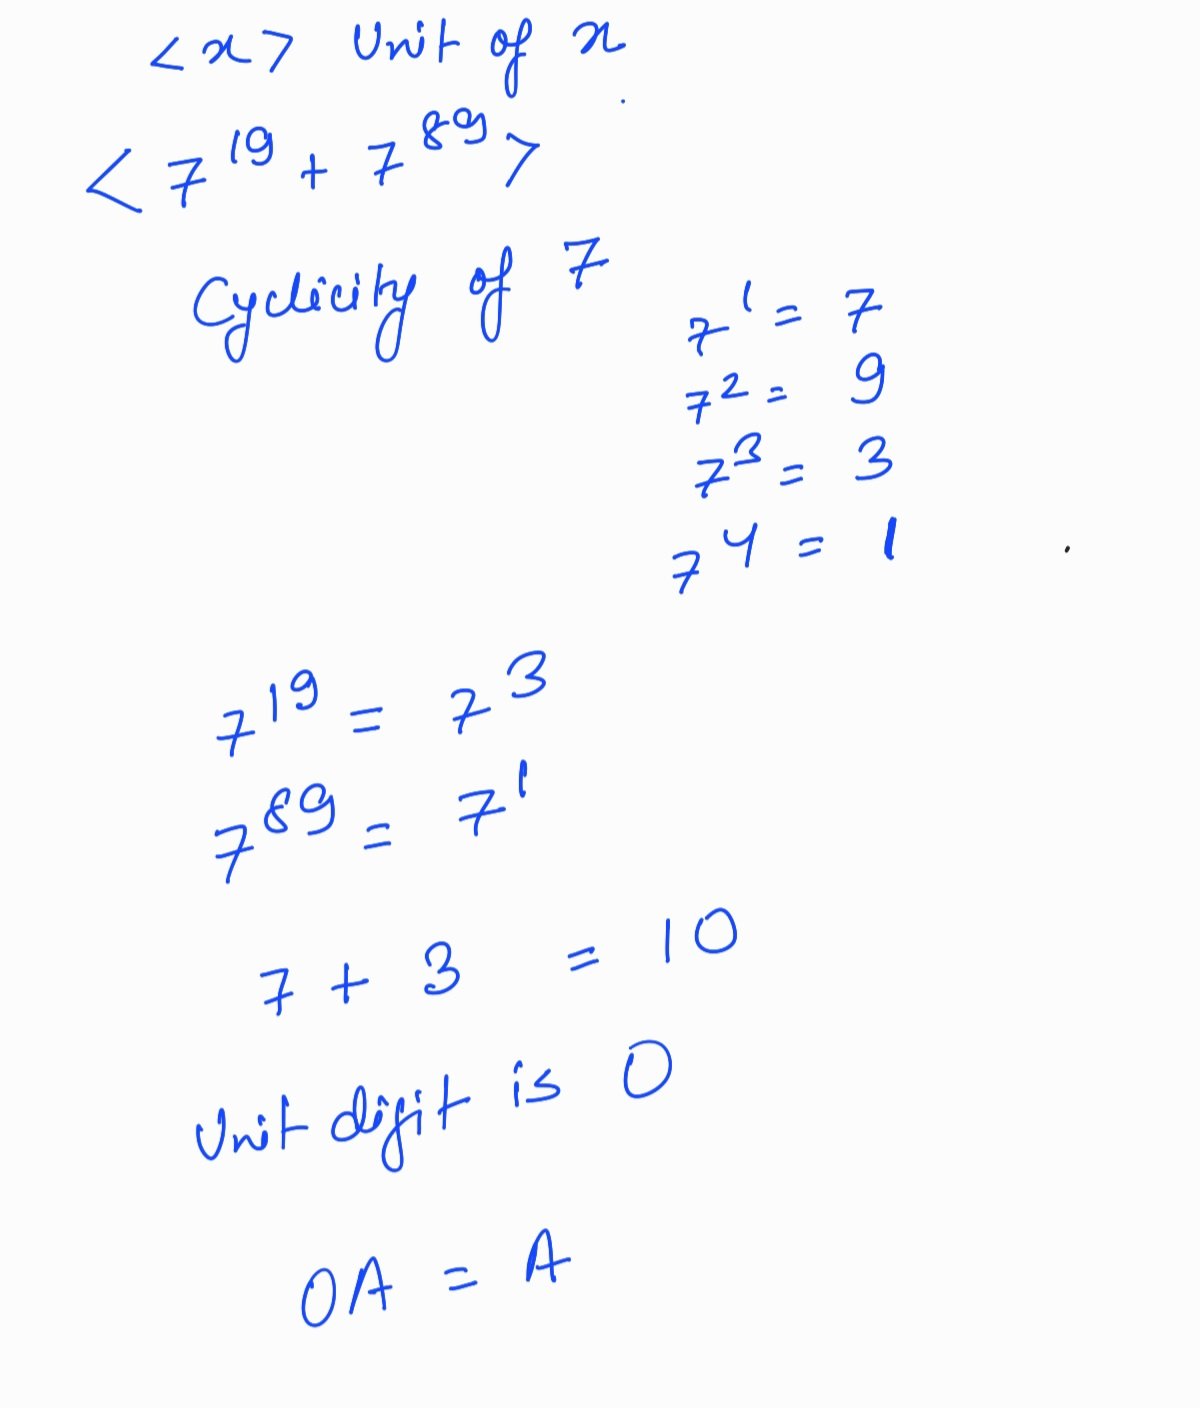 <x> Unit of x
<7^19 + 7^89>
Cyclicity of 7
7^1 = 7
7^2 = 9
7^3 = 3
7^4 = 1
7^19 = 7^3
7^89 = 7^1
7 + 3 = 10
Unit digit is 0
OA = A